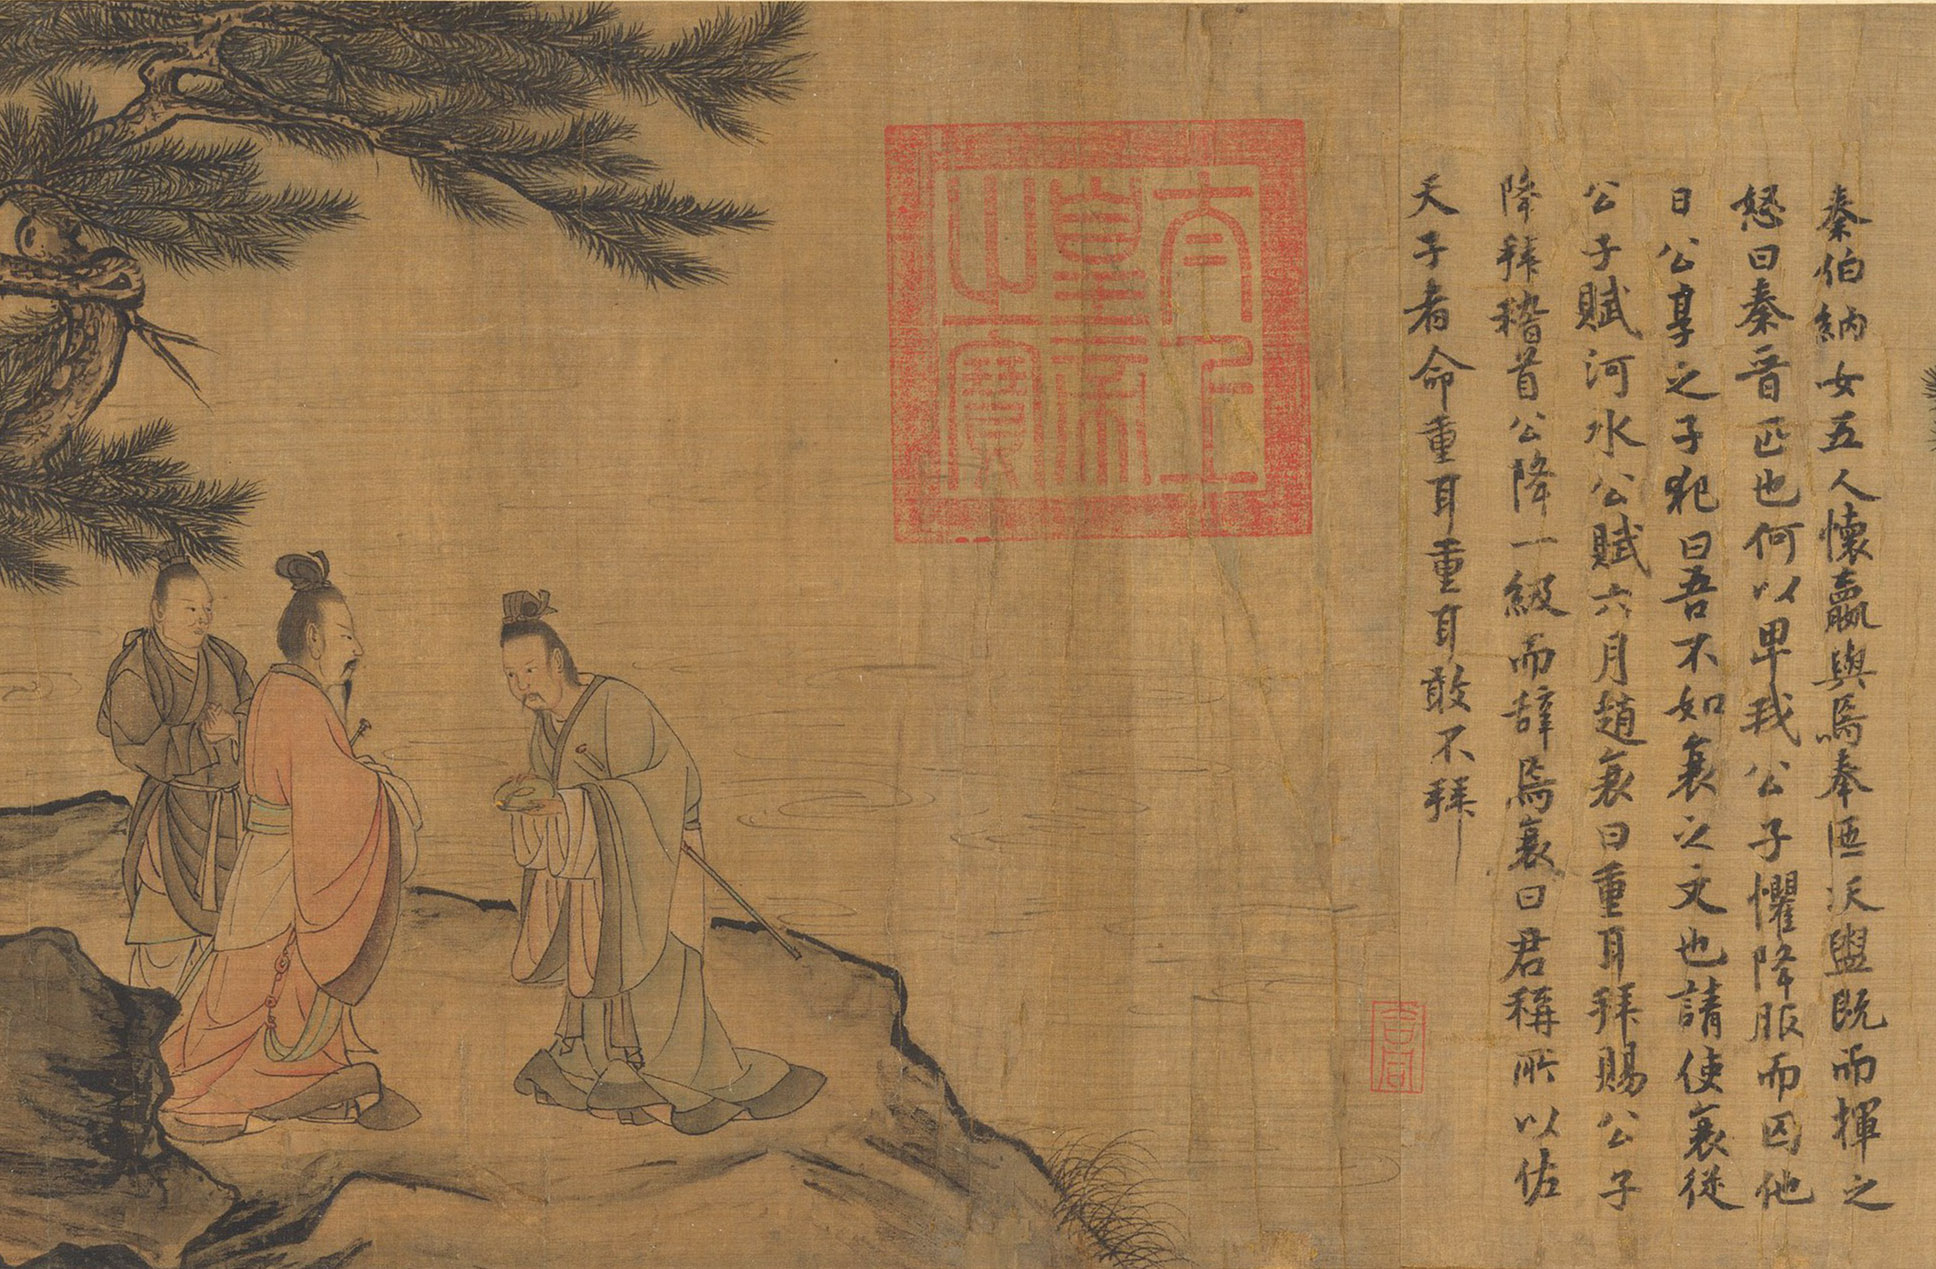 秦伯納女五人懷嬴與焉奉匜沃盥既而揮之
怒曰秦晉匹也何以卑我公子懼降服而囚他
日公享之子犯曰吾不如衰之文也請使衰從
公子賦河水公賦六月趙衰曰重耳拜賜公子
降拜稽首公降一級而辭焉衰曰君稱所以佐
天子者命重耳重耳敢不拜
太上
皇帝
之寶